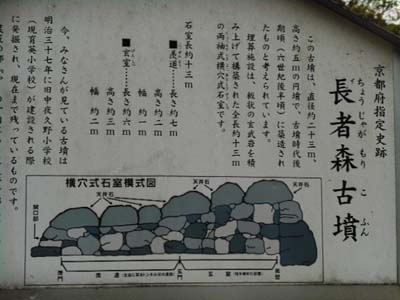 京都府指定史跡
ちょうじゃがもりこふん
長者森古墳
この古墳は、直径約二十三m、
高さ約五mの円墳で、古墳時代後
期頃（六世紀後半頃）に築造され
たものと考えられています。
埋葬施設は、板状の玄武岩を積
み上げて構築された全長約十三m
の両袖式横穴式石室です。
石室長約十三m
■羨道……長さ約七m
幅　約一m
高さ約二m
■玄室……長さ約六m
高さ約三m
幅　約二m
今、みなさんが見ている古墳は
明治三十七年に旧中夜久野小学校
（現育英小学校）が建設される際
に発掘され、現在まで残っているものです。
横穴式石室模式図
天井石
天井石
天井石
開口部
羨門
羨道
玄門
玄室
奥壁